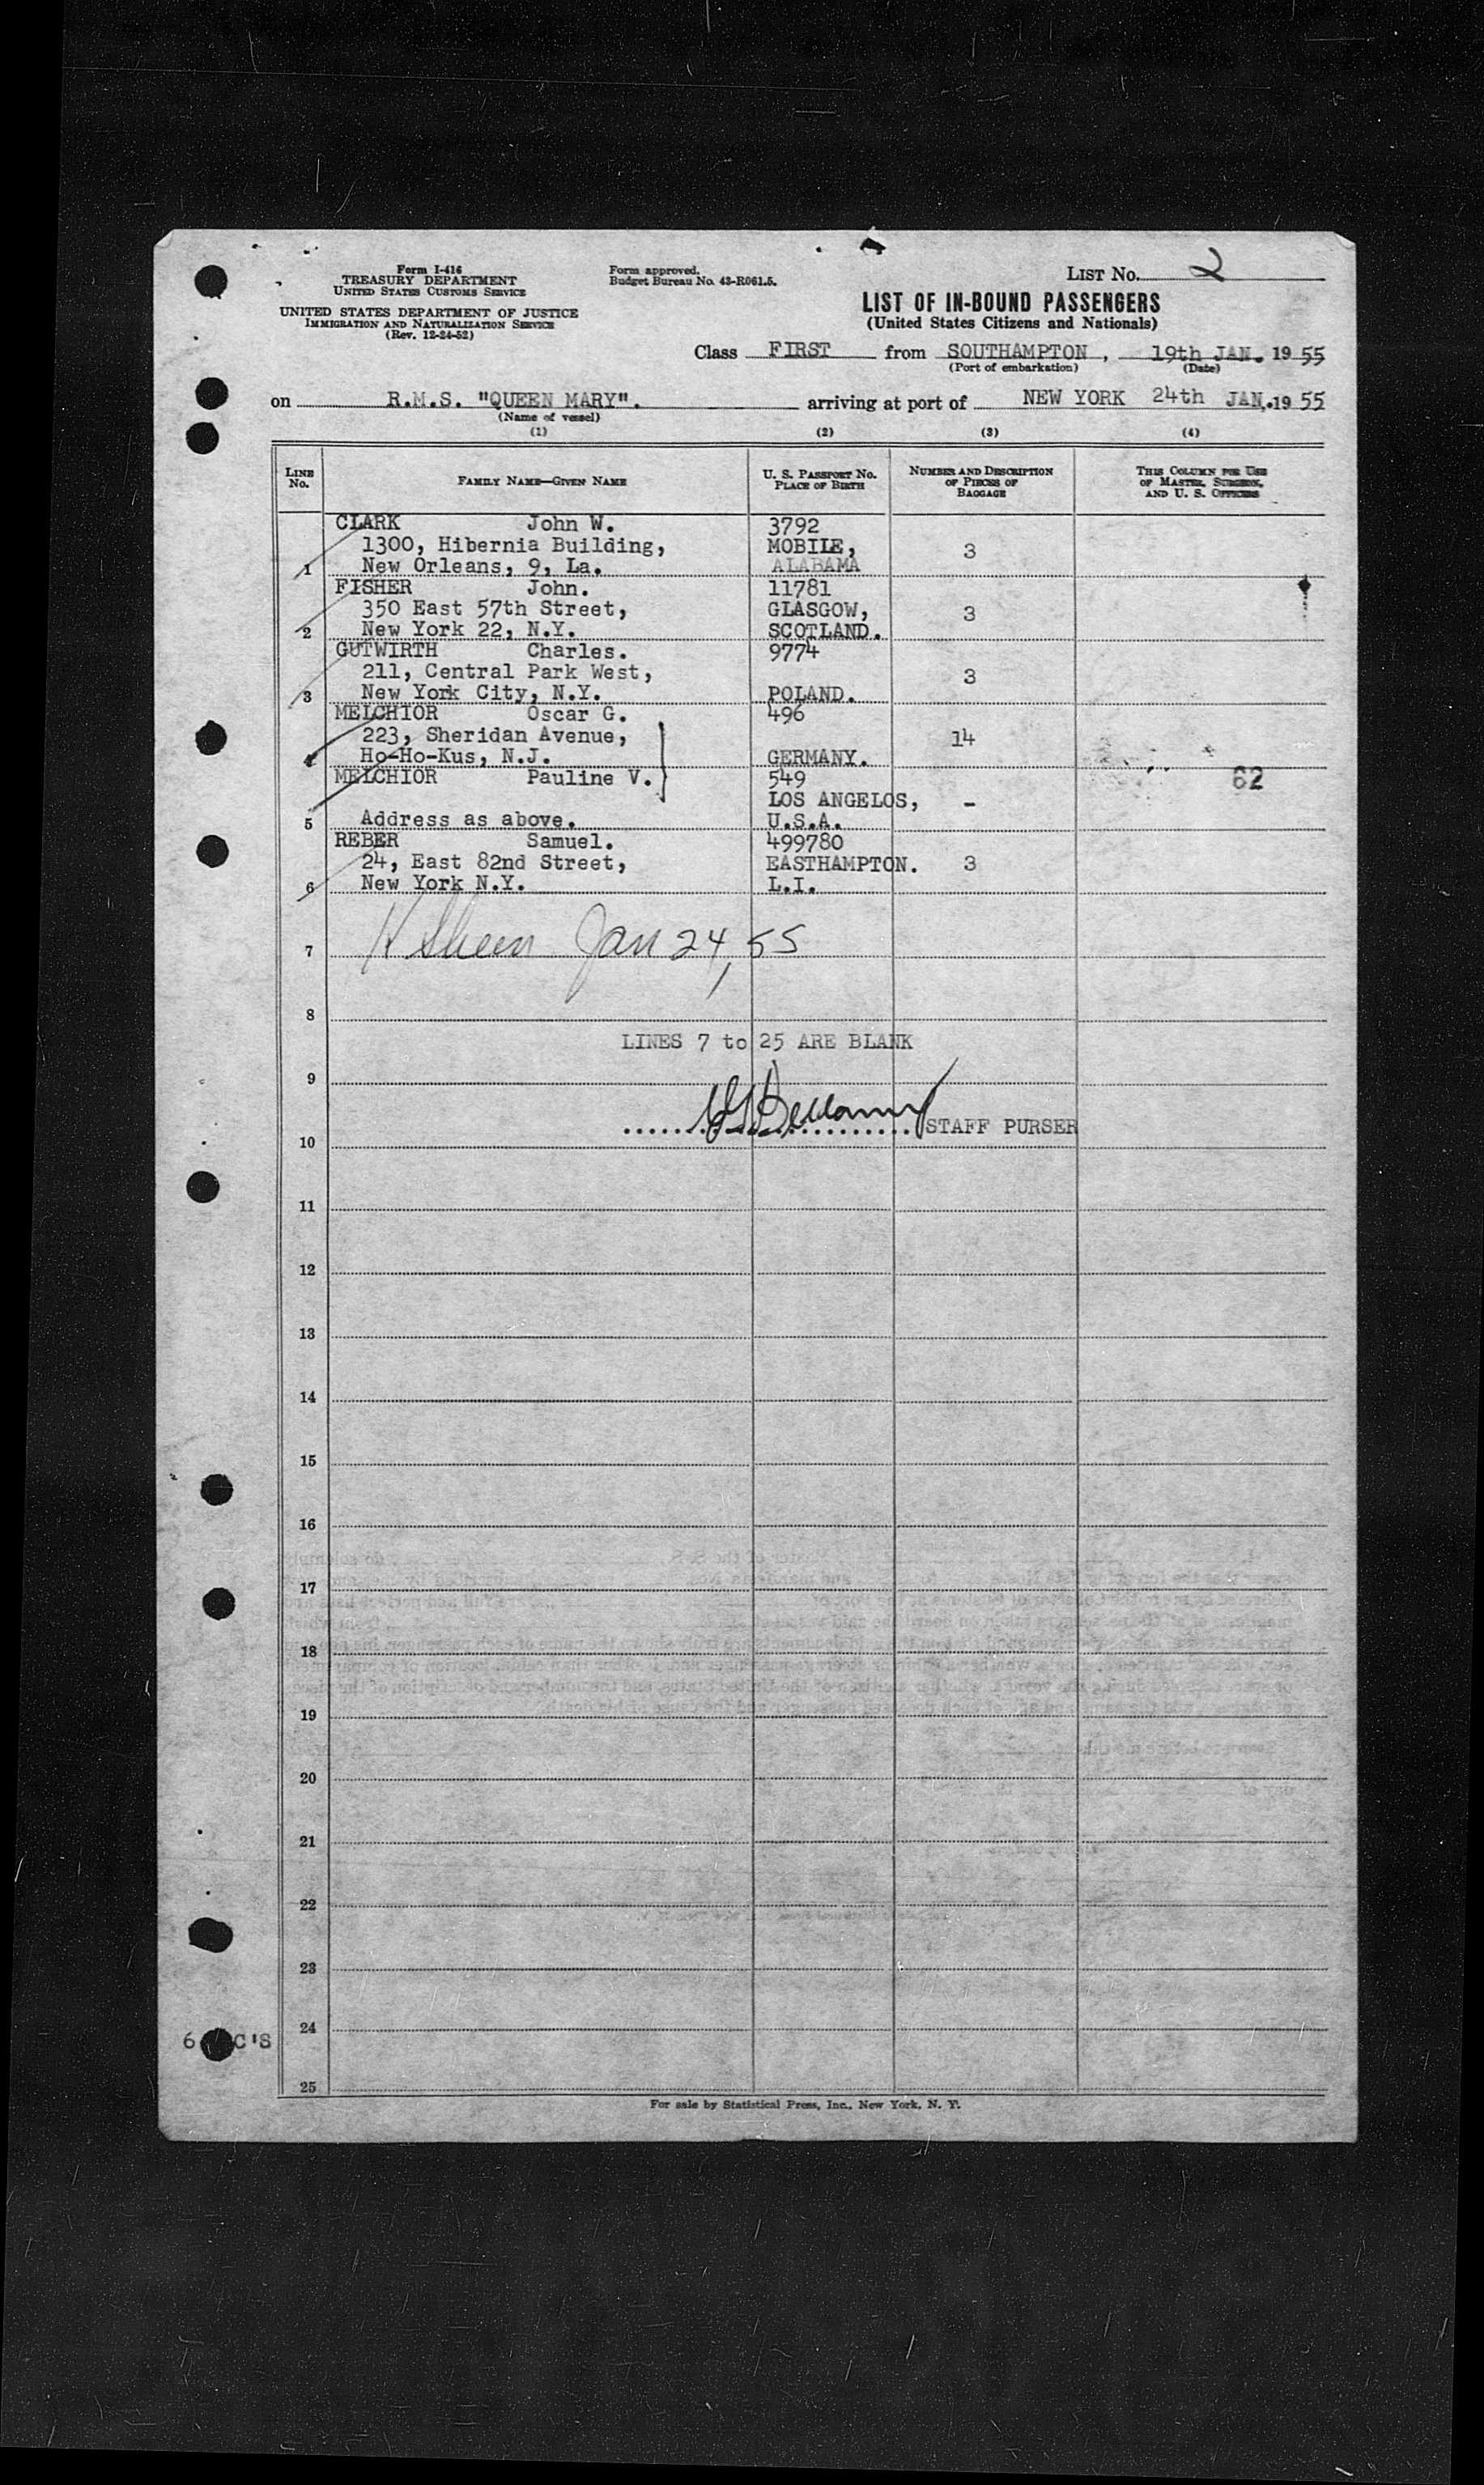 Form I-416
TREASURY DEPARTMENT
UNITED STATES CUSTOMS SERVICE
UNITED STATES DEPARTMENT OF JUSTICE
IMMIGRATION AND NATURALIZATION SERVICE
(Rev. 12-24-52)
Form approved.
Budget Bureau No. 43-R061.5.
LIST No. 2
LIST OF IN-BOUND PASSENGERS
(United States Citizens and Nationals)
Class FIRST from SOUTHAMPTON , 19th JAN. 1955
(Port of embarkation) (Date)
on R.M.S. "QUEEN MARY". arriving at port of NEW YORK 24th JAN,.1955
(Name of vessel)
(1) (2) (3) (4)
LINE No. FAMILY NAME—GIVEN NAME U. S. PASSPORT No. PLACE OF BIRTH NUMBER AND DESCRIPTION OF PIECES OF BAGGAGE THIS COLUMN FOR USE OF MASTER, SURGEON, AND U. S. OFFICERS
CLARK John W. 3792
1300, Hibernia Building, MOBILE, 3
1 New Orleans, 9, La. ALABAMA
FISHER John. 11781
350 East 57th Street, GLASGOW, 3
2 New York 22, N.Y. SCOTLAND.
GUTWIRTH Charles. 9774
211, Central Park West, 3
3 New York City, N.Y. POLAND.
MELCHIOR Oscar G. 496
223, Sheridan Avenue, 14
4 Ho-Ho-Kus, N.J. GERMANY.
MELCHIOR Pauline V. 549 62
LOS ANGELOS, -
5 Address as above. U.S.A.
REBER Samuel. 499780
24, East 82nd Street, EASTHAMPTON. 3
6 New York N.Y. L.I.
7 Jan 24, 55
8
LINES 7 to 25 ARE BLANK
9
STAFF PURSER
10
11
12
13
14
15
16
17
18
19
20
21
22
23
6 C'S 24
25
For sale by Statistical Press, Inc., New York, N. Y.